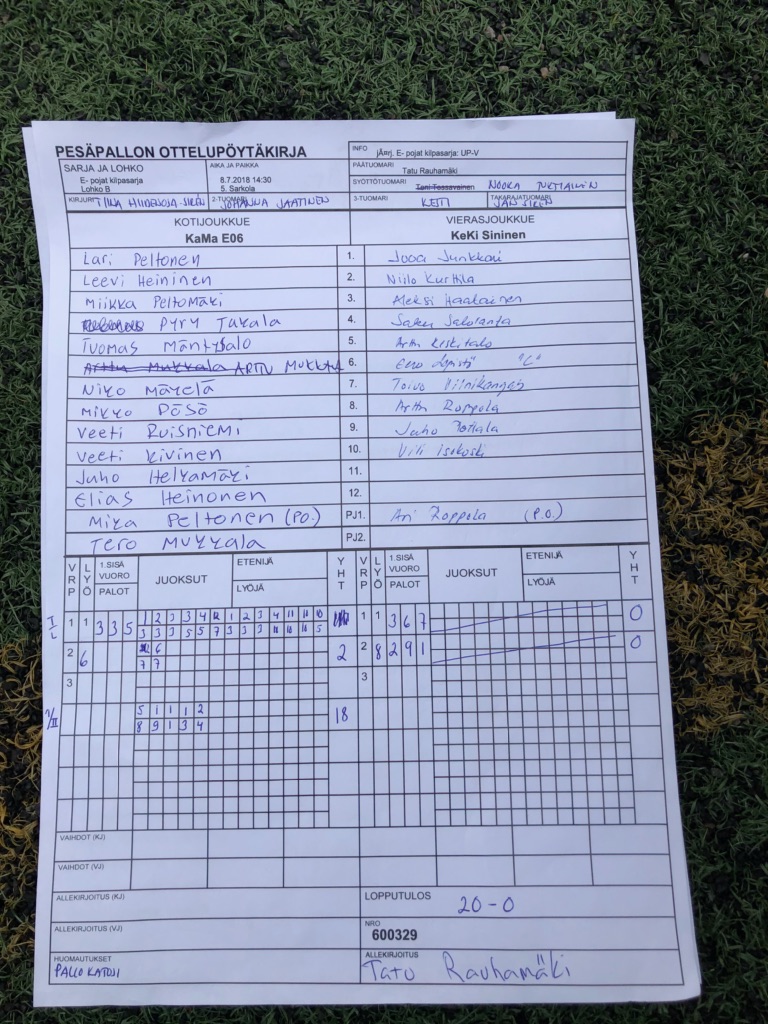 PESÄPALLON OTTELUPÖYTÄKIRJA
INFO jÄ¤rj. E- pojat kilpasarja: UP-V
SARJA JA LOHKO
E- pojat kilpasarja
Lohko B
AIKA JA PAIKKA
8.7.2018 14:30
5. Sarkola
PÄÄTUOMARI
Tatu Rauhamäki
SYÖTTÖTUOMARI Toni Tossavainen NOORA
KIRJURI TIINA 2-TUOMARI JOHANNA JAATINEN 3-TUOMARI KETI TAKARAJATUOMARI JAN SIREN
KOTIJOUKKUE VIERASJOUKKUE
KaMa E06 KeKi Sininen
Lari Peltonen 1. Jooa Junkkari
Leevi Heininen 2. Niilo Kurttila
Miikka Peltomäki 3. Aleksi
PYRY TUKALA 4.
Tuomas Mäntysalo 5. Artt
Arttu Mukkala ARTTU MUKKALA 6. Eero "C"
Niko Mäkelä 7. Toivo
Mikko Pösö 8. Arttu Roppola
Veeti Ruisniemi 9. Juho
Veeti Kivinen 10. Vili Isokoski
Juho Helkamäki 11.
Elias Heinonen 12.
Mika Peltonen (P.O.) PJ1. Ari Roppola (P.O.)
Tero Mukkala PJ2.
VRP LYÖ 1.SISÄ VUORO PALOT JUOKSUT ETENIJÄ LYÖJÄ YHT VRP LYÖ 1.SISÄ VUORO PALOT JUOKSUT ETENIJÄ LYÖJÄ YHT
1 1 3 3 5 1 2 3 3 4 12 1 2 3 4 11 11 10 1 1 3 6 7 0
3 3 3 5 5 7 3 3 3 11 10 10 5
2 6 6 2 2 8 2 9 1 0
7 7
3 3
5 1 1 1 2 18
8 9 1 3 4
VAIHDOT (KJ)
VAIHDOT (VJ)
ALLEKIRJOITUS (KJ) LOPPUTULOS 20-0
ALLEKIRJOITUS (VJ) NRO
600329
HUOMAUTUKSET ALLEKIRJOITUS
PALLO KATOSI Tatu Rauhamäki